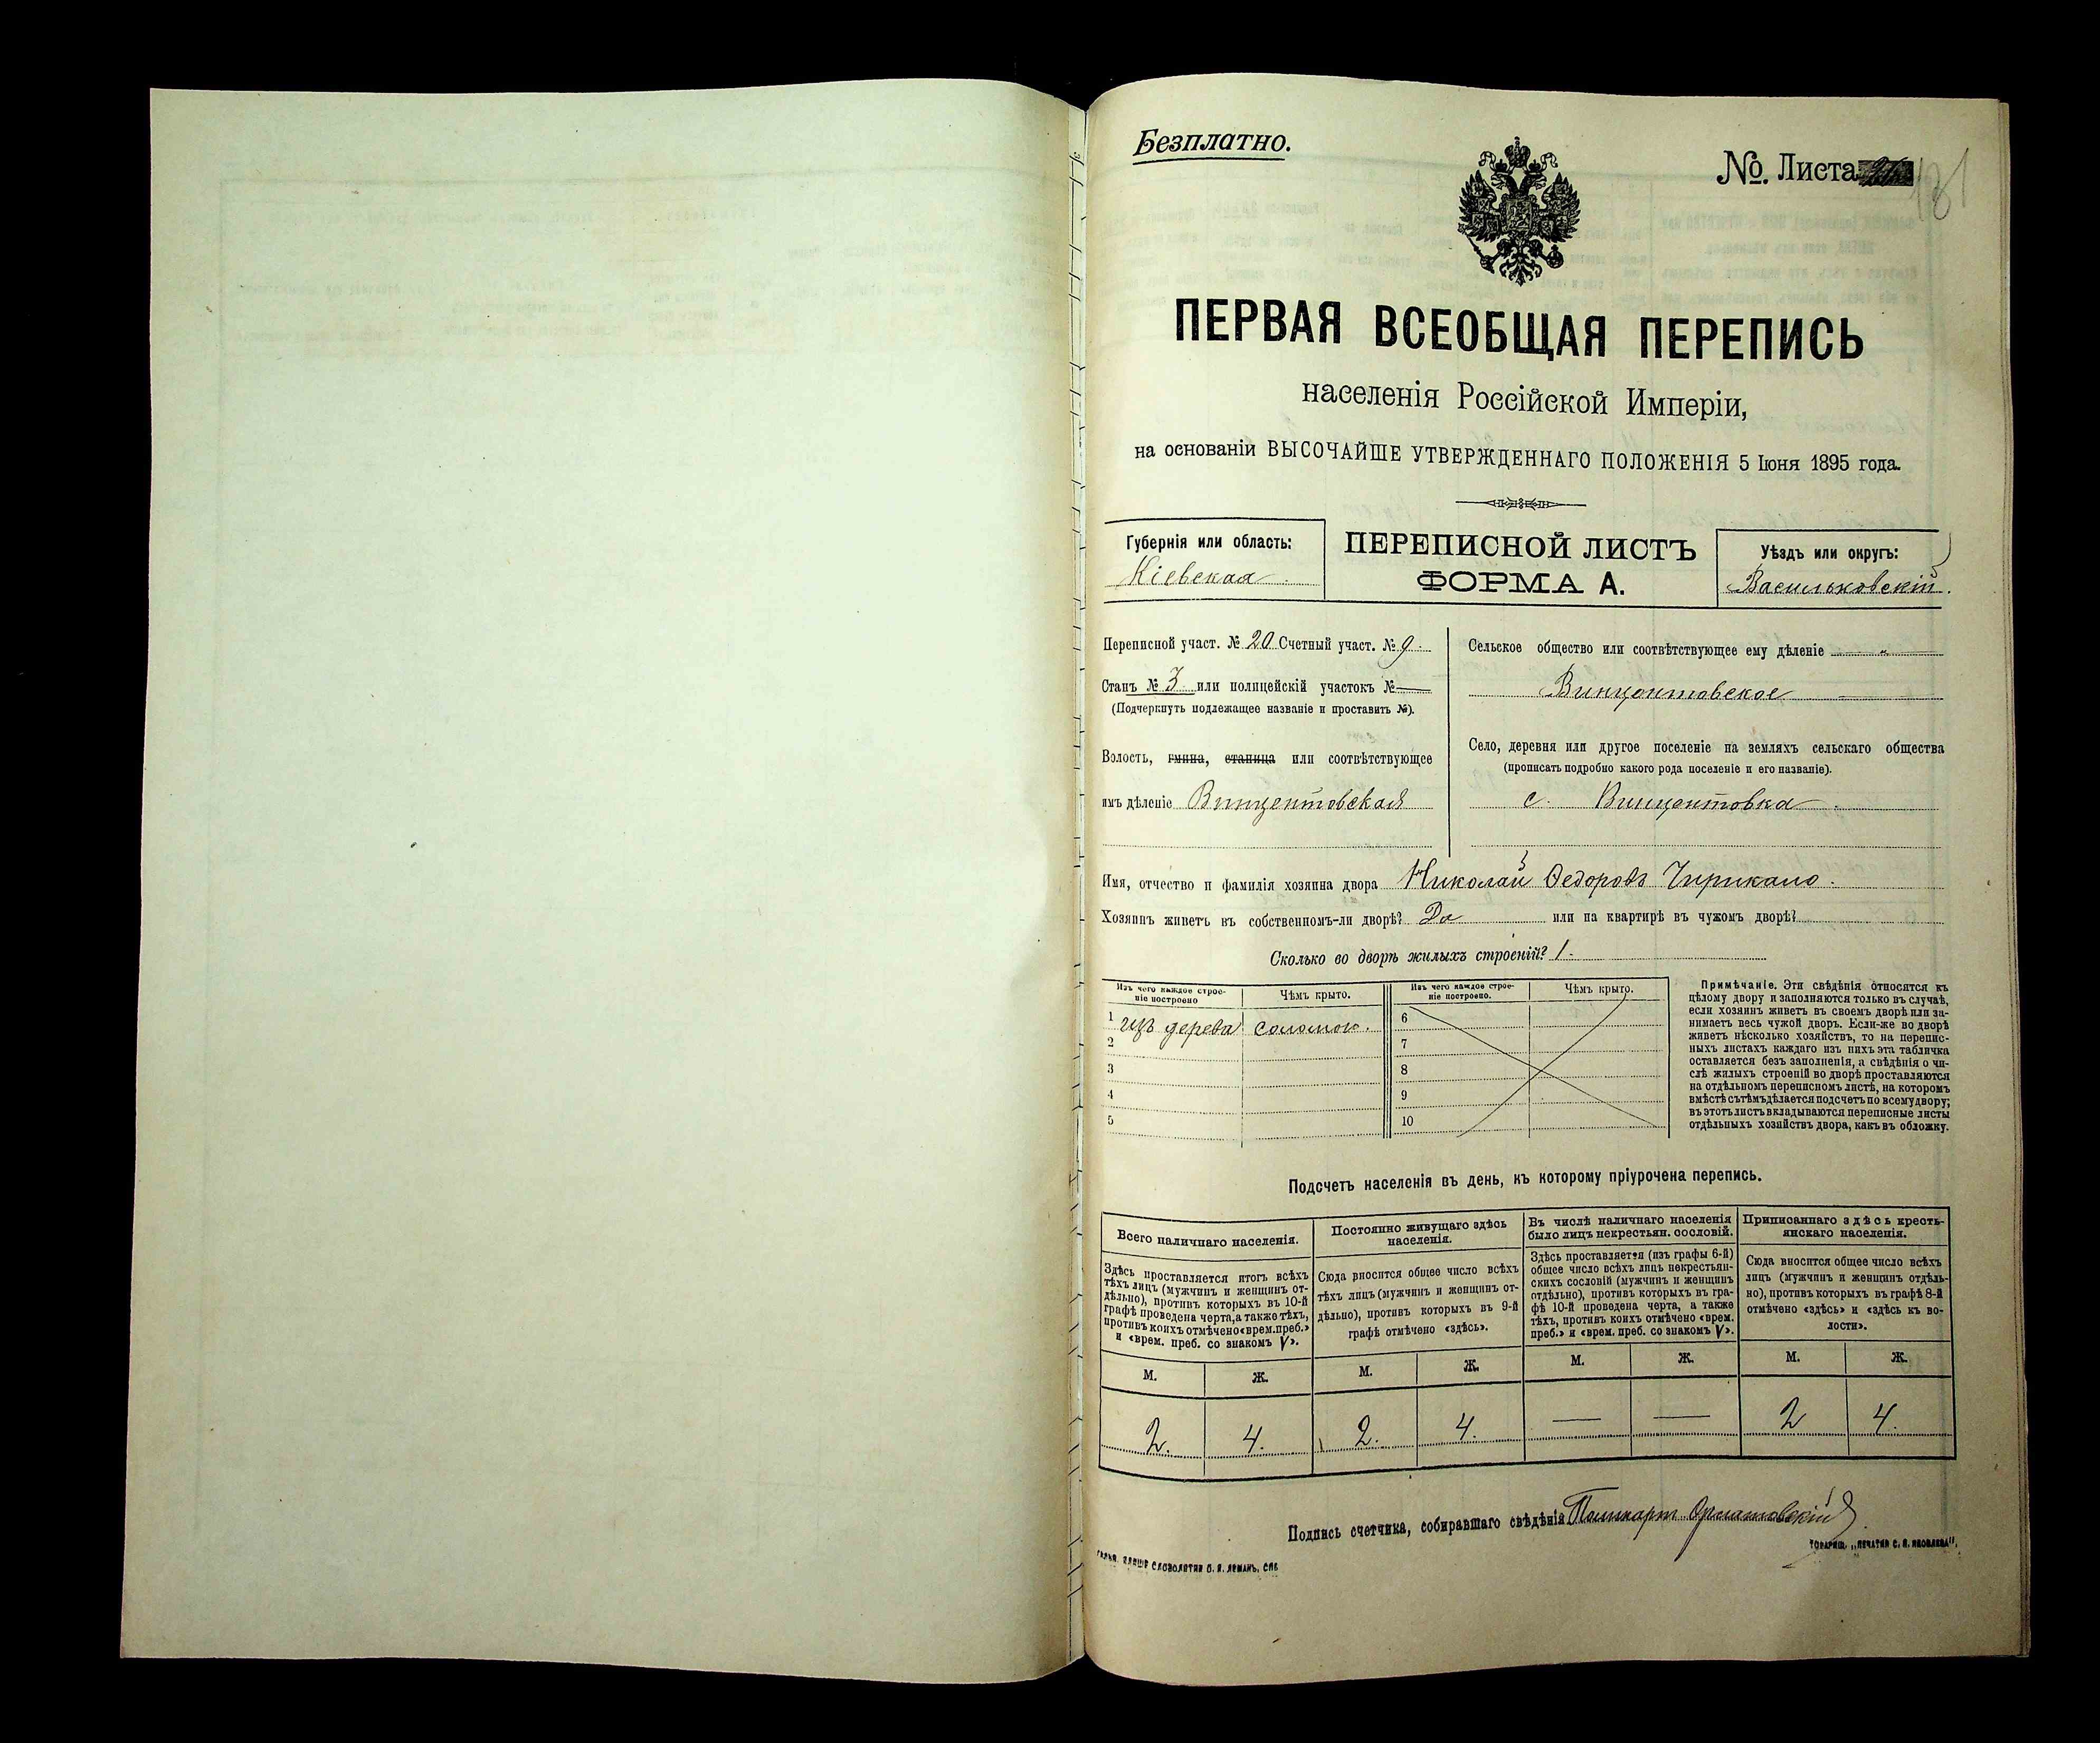 Безплатно.
№. Листа
181
ПЕРВАЯ ВСЕОБЩАЯ ПЕРЕПИСЬ
населенія Россійской Имперіи,
на основаніи ВЫСОЧАЙШЕ УТВЕРЖДЕННАГО ПОЛОЖЕНІЯ 5 Іюня 1895 года.
Губернія или область:
Кіевская
ПЕРЕПИСНОЙ ЛИСТЪ
ФОРМА А.
Уѣздъ или округъ:
Васильковскій.
Переписной участ. № 20 Счетный участ. № 9.
Станъ № 3 или полицейскій участокъ № —
(Подчеркнуть подлежащее названіе и проставить №).
Волость, гмина, станица или соотвѣтствующее
имъ дѣленіе Винцентовская
Сельское общество или соотвѣтствующее ему дѣленіе
Винцентовское
Село, деревня или другое поселеніе на земляхъ сельскаго общества
(прописать подробно какого рода поселеніе и его названіе).
с. Винцентовка
Имя, отчество и фамилія хозяина двора Николай Ѳедоровъ Чирикало.
Хозяинъ живетъ въ собственномъ-ли дворѣ? Да или на квартирѣ въ чужомъ дворѣ?
Сколько во дворѣ жилыхъ строеній? 1.
Изъ чего каждое строе-
ніе построено
Чѣмъ крыто.
Изъ чего каждое строе-
ніе построено.
Чѣмъ крыто.
1 изъ дерева соломою.
2
3
4
5
6
7
8
9
10
Примѣчаніе. Эти свѣдѣнія относятся къ
цѣлому двору и заполняются только въ случаѣ,
если хозяинъ живетъ въ своемъ дворѣ или за-
нимаетъ весь чужой дворъ. Если-же во дворѣ
живетъ нѣсколько хозяйствъ, то на перепис-
ныхъ листахъ каждаго изъ нихъ эта табличка
оставляется безъ заполненія, а свѣдѣнія о чи-
слѣ жилыхъ строеній во дворѣ проставляются
на отдѣльномъ переписномъ листѣ, на которомъ
вмѣстѣ съ тѣмъ дѣлается подсчетъ по всему двору;
въ этотъ листъ вкладываются переписные листы
отдѣльныхъ хозяйствъ двора, какъ въ обложку.
Подсчетъ населенія въ день, къ которому пріурочена перепись.
Всего наличнаго населенія.
Здѣсь проставляется итогъ всѣхъ
тѣхъ лицъ (мужчинъ и женщинъ от-
дѣльно), противъ которыхъ въ 10-й
графѣ проведена черта, а также тѣхъ,
противъ коихъ отмѣчено «врем. преб.»
и «врем. преб. со знакомъ V».
М. Ж.
2. 4.
Постоянно живущаго здѣсь
населенія.
Сюда вносится общее число всѣхъ
тѣхъ лицъ (мужчинъ и женщинъ от-
дѣльно), противъ которыхъ въ 9-й
графѣ отмѣчено «здѣсь».
М. Ж.
2. 4.
Въ числѣ наличнаго населенія
было лицъ некрестьян. сословій.
Здѣсь проставляется (изъ графы 6-й)
общее число всѣхъ лицъ некрестьян-
скихъ сословій (мужчинъ и женщинъ
отдѣльно), противъ которыхъ въ гра-
фѣ 10-й проведена черта, а также
тѣхъ, противъ коихъ отмѣчено «врем.
преб.» и «врем. преб. со знакомъ V».
М. Ж.
— —
Приписаннаго здѣсь кресть-
янскаго населенія.
Сюда вносится общее число всѣхъ
лицъ (мужчинъ и женщинъ отдѣль-
но), противъ которыхъ въ графѣ 8-й
отмѣчено «здѣсь» и «здѣсь къ во-
лости».
М. Ж.
2 4.
Подпись счетчика, собиравшаго свѣдѣнія
СЛОВОЛИТНИ О. И. ЛЕМАНЪ, СПБ
ТОВАРИЩ. „ПЕЧАТНЯ С. П. ЯКОВЛЕВА".